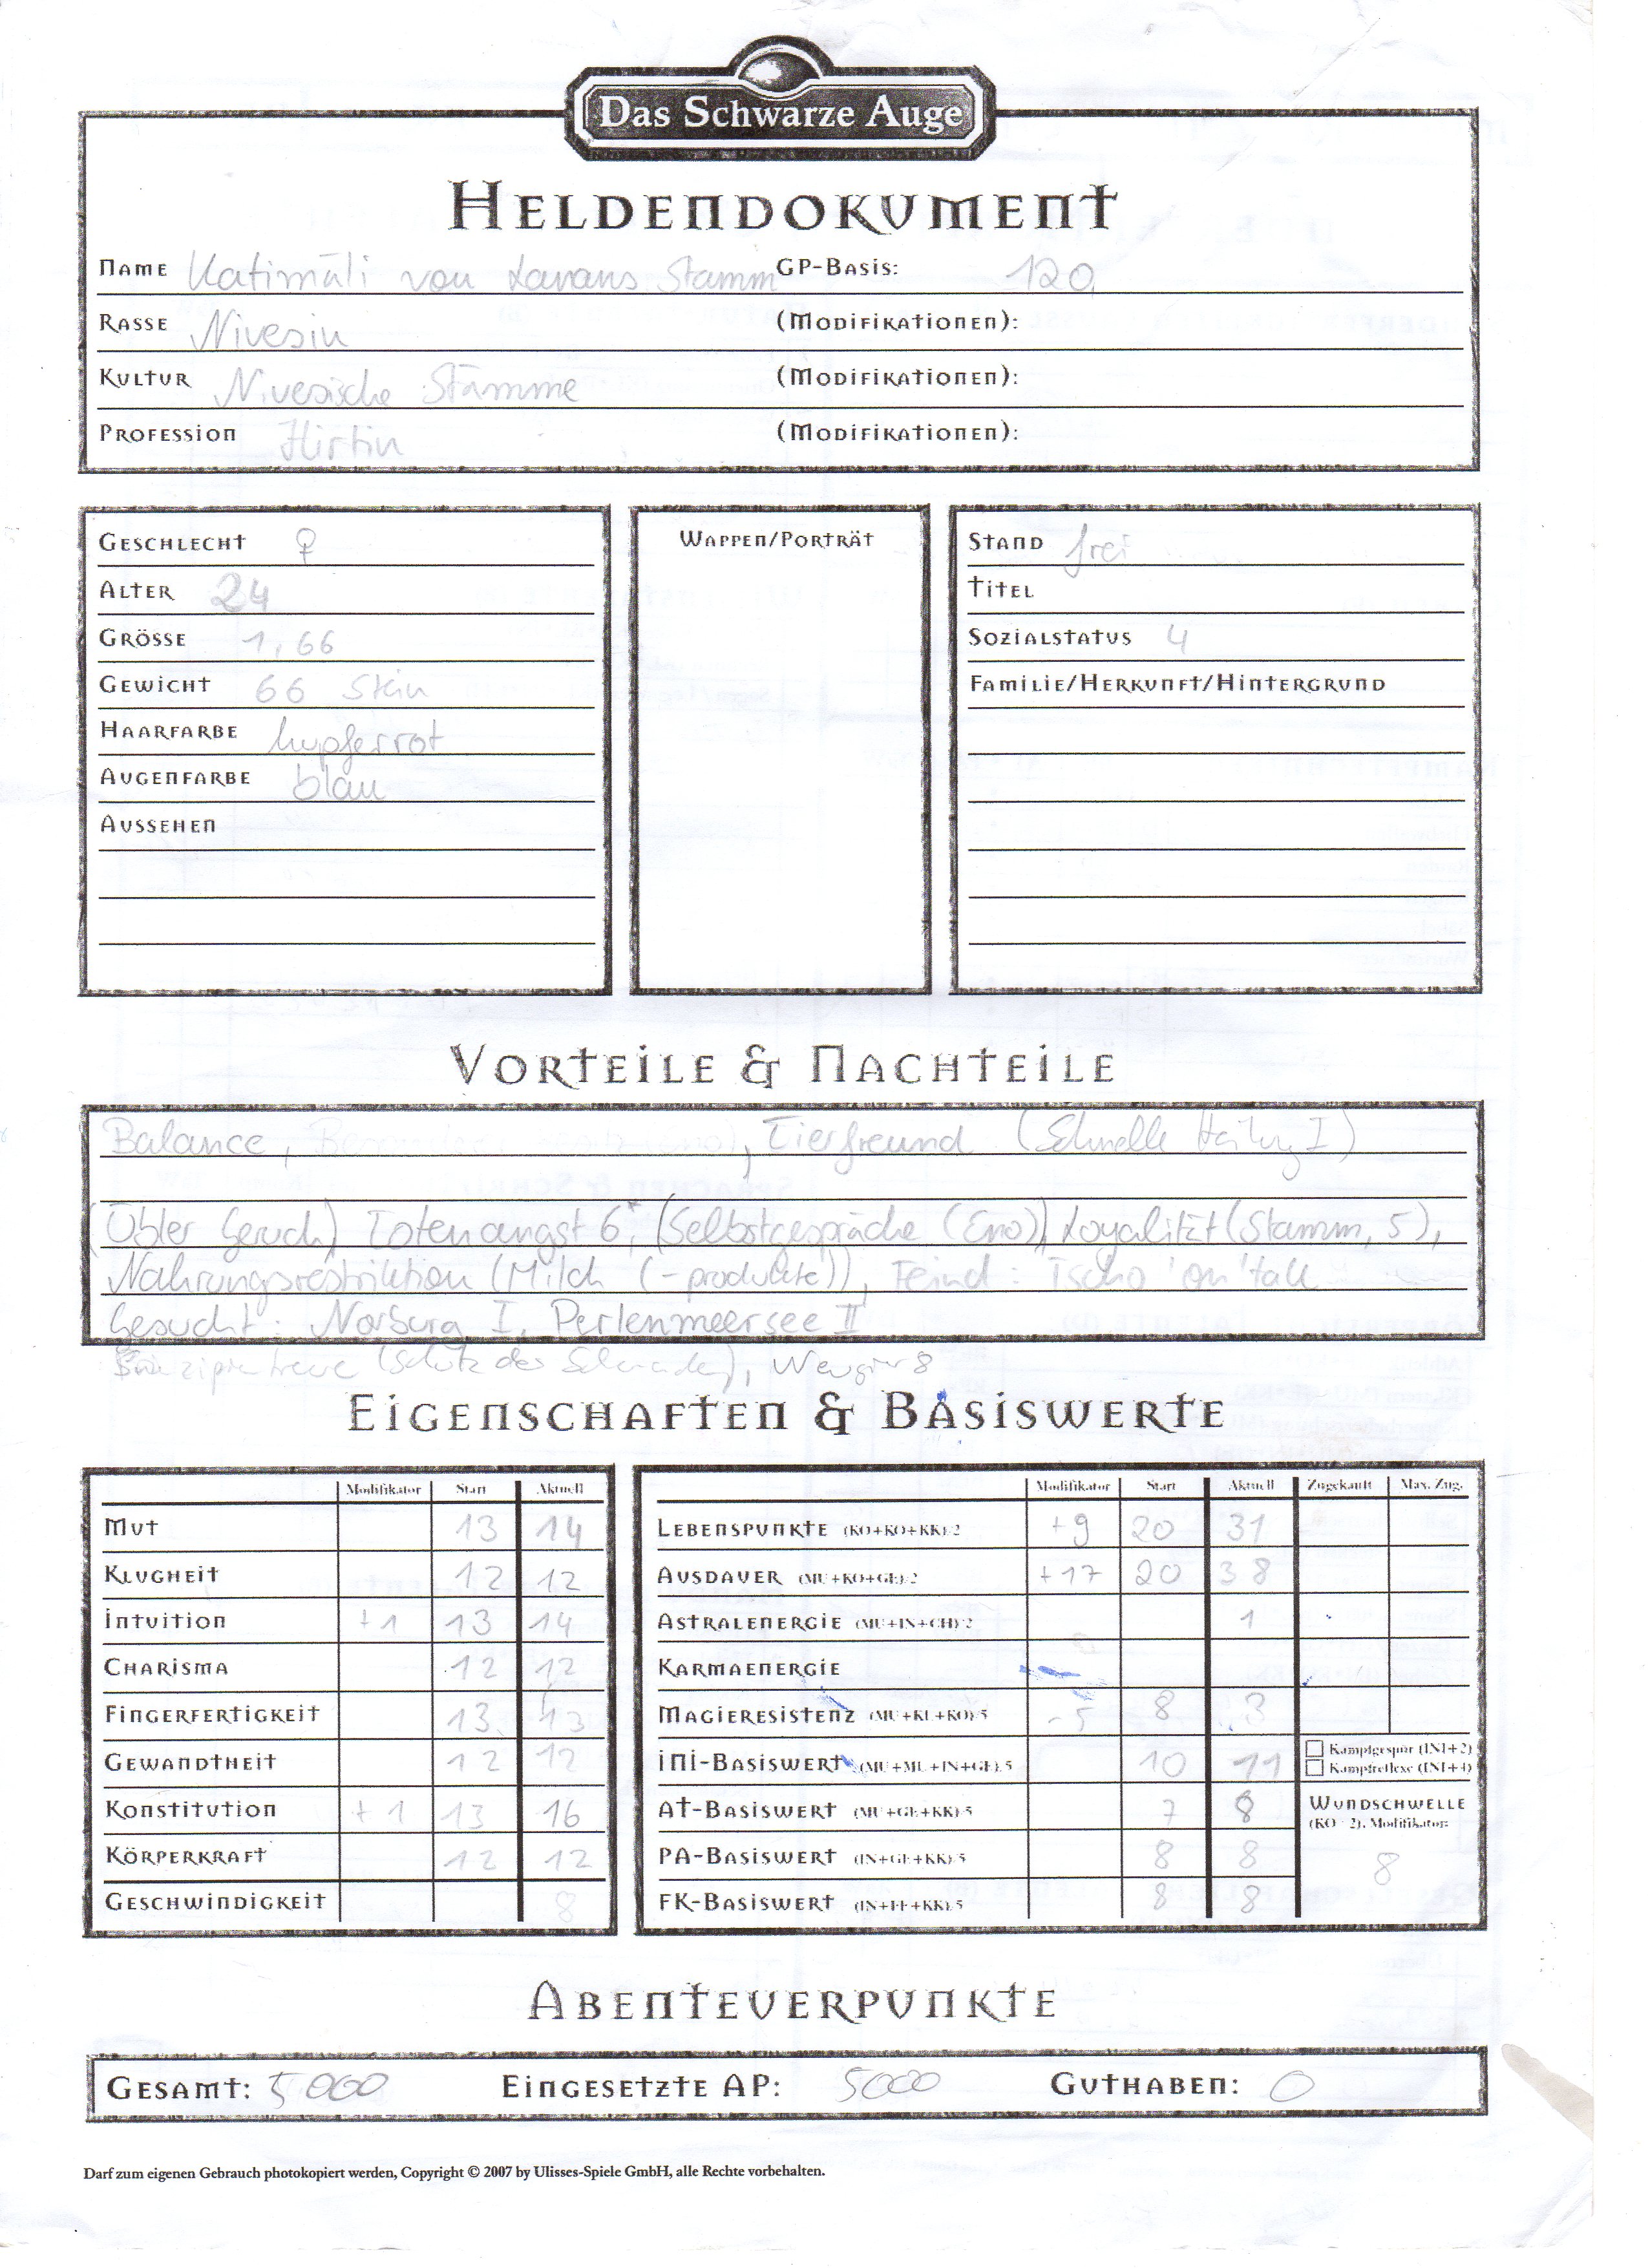 Das Schwarze Auge
Heldendokument
Name Katimäli von Lavans Stamm GP-Basis: 120
Rasse Nivesin (Modifikationen):
Kultur Nivesische Stämme (Modifikationen):
Profession Hirtin (Modifikationen):
Geschlecht ♀
Alter 24
Grösse 1,66
Gewicht 66 Stein
Haarfarbe kupferrot
Augenfarbe blau
Aussehen
Wappen/Porträt
Stand frei
Titel
Sozialstatus 4
Familie/Herkunft/Hintergrund
Vorteile & Nachteile
Balance, Tierfreund (Schnelle Heilung I)
(Übler Geruch) Totenangst 6, (Selbstgespräche (Eno)) Loyalität (Stamm, 5),
Nahrungsrestriktion (Milch (-produkte)), Feind: Tscho'on'tak
Gesucht: Norburg I, Perlenmeersee II
Prinzipientreue (Schutz der), Neugier 8
Eigenschaften & Basiswerte
Modifikator Start Aktuell
Mut 13 14
Klugheit 12 12
Intuition +1 13 14
Charisma 12 12
Fingerfertigkeit 13 13
Gewandtheit 12 12
Konstitution +1 13 16
Körperkraft 12 12
Geschwindigkeit 8
Modifikator Start Aktuell Zugekauft Max. Zug.
Lebenspunkte (KO+KO+KK):2 +9 20 31
Ausdauer (MU+KO+GE):2 +17 20 38
Astralenergie (MU+IN+CH):2 1
Karmaenergie
Magieresistenz (MU+KL+KO):5 -5 8 3
INI-Basiswert (MU+MU+IN+GE):5 10 11 Kampfgespür (INI+2)
Kampfreflexe (INI+4)
AT-Basiswert (MU+GE+KK):5 7 8 Wundschwelle
(KO : 2), Modifikator:
PA-Basiswert (IN+GE+KK):5 8 8 8
FK-Basiswert (IN+FF+KK):5 8 8
Abenteuerpunkte
Gesamt: 5000 Eingesetzte AP: 5000 Guthaben: 0
Darf zum eigenen Gebrauch photokopiert werden, Copyright © 2007 by Ulisses-Spiele GmbH, alle Rechte vorbehalten.